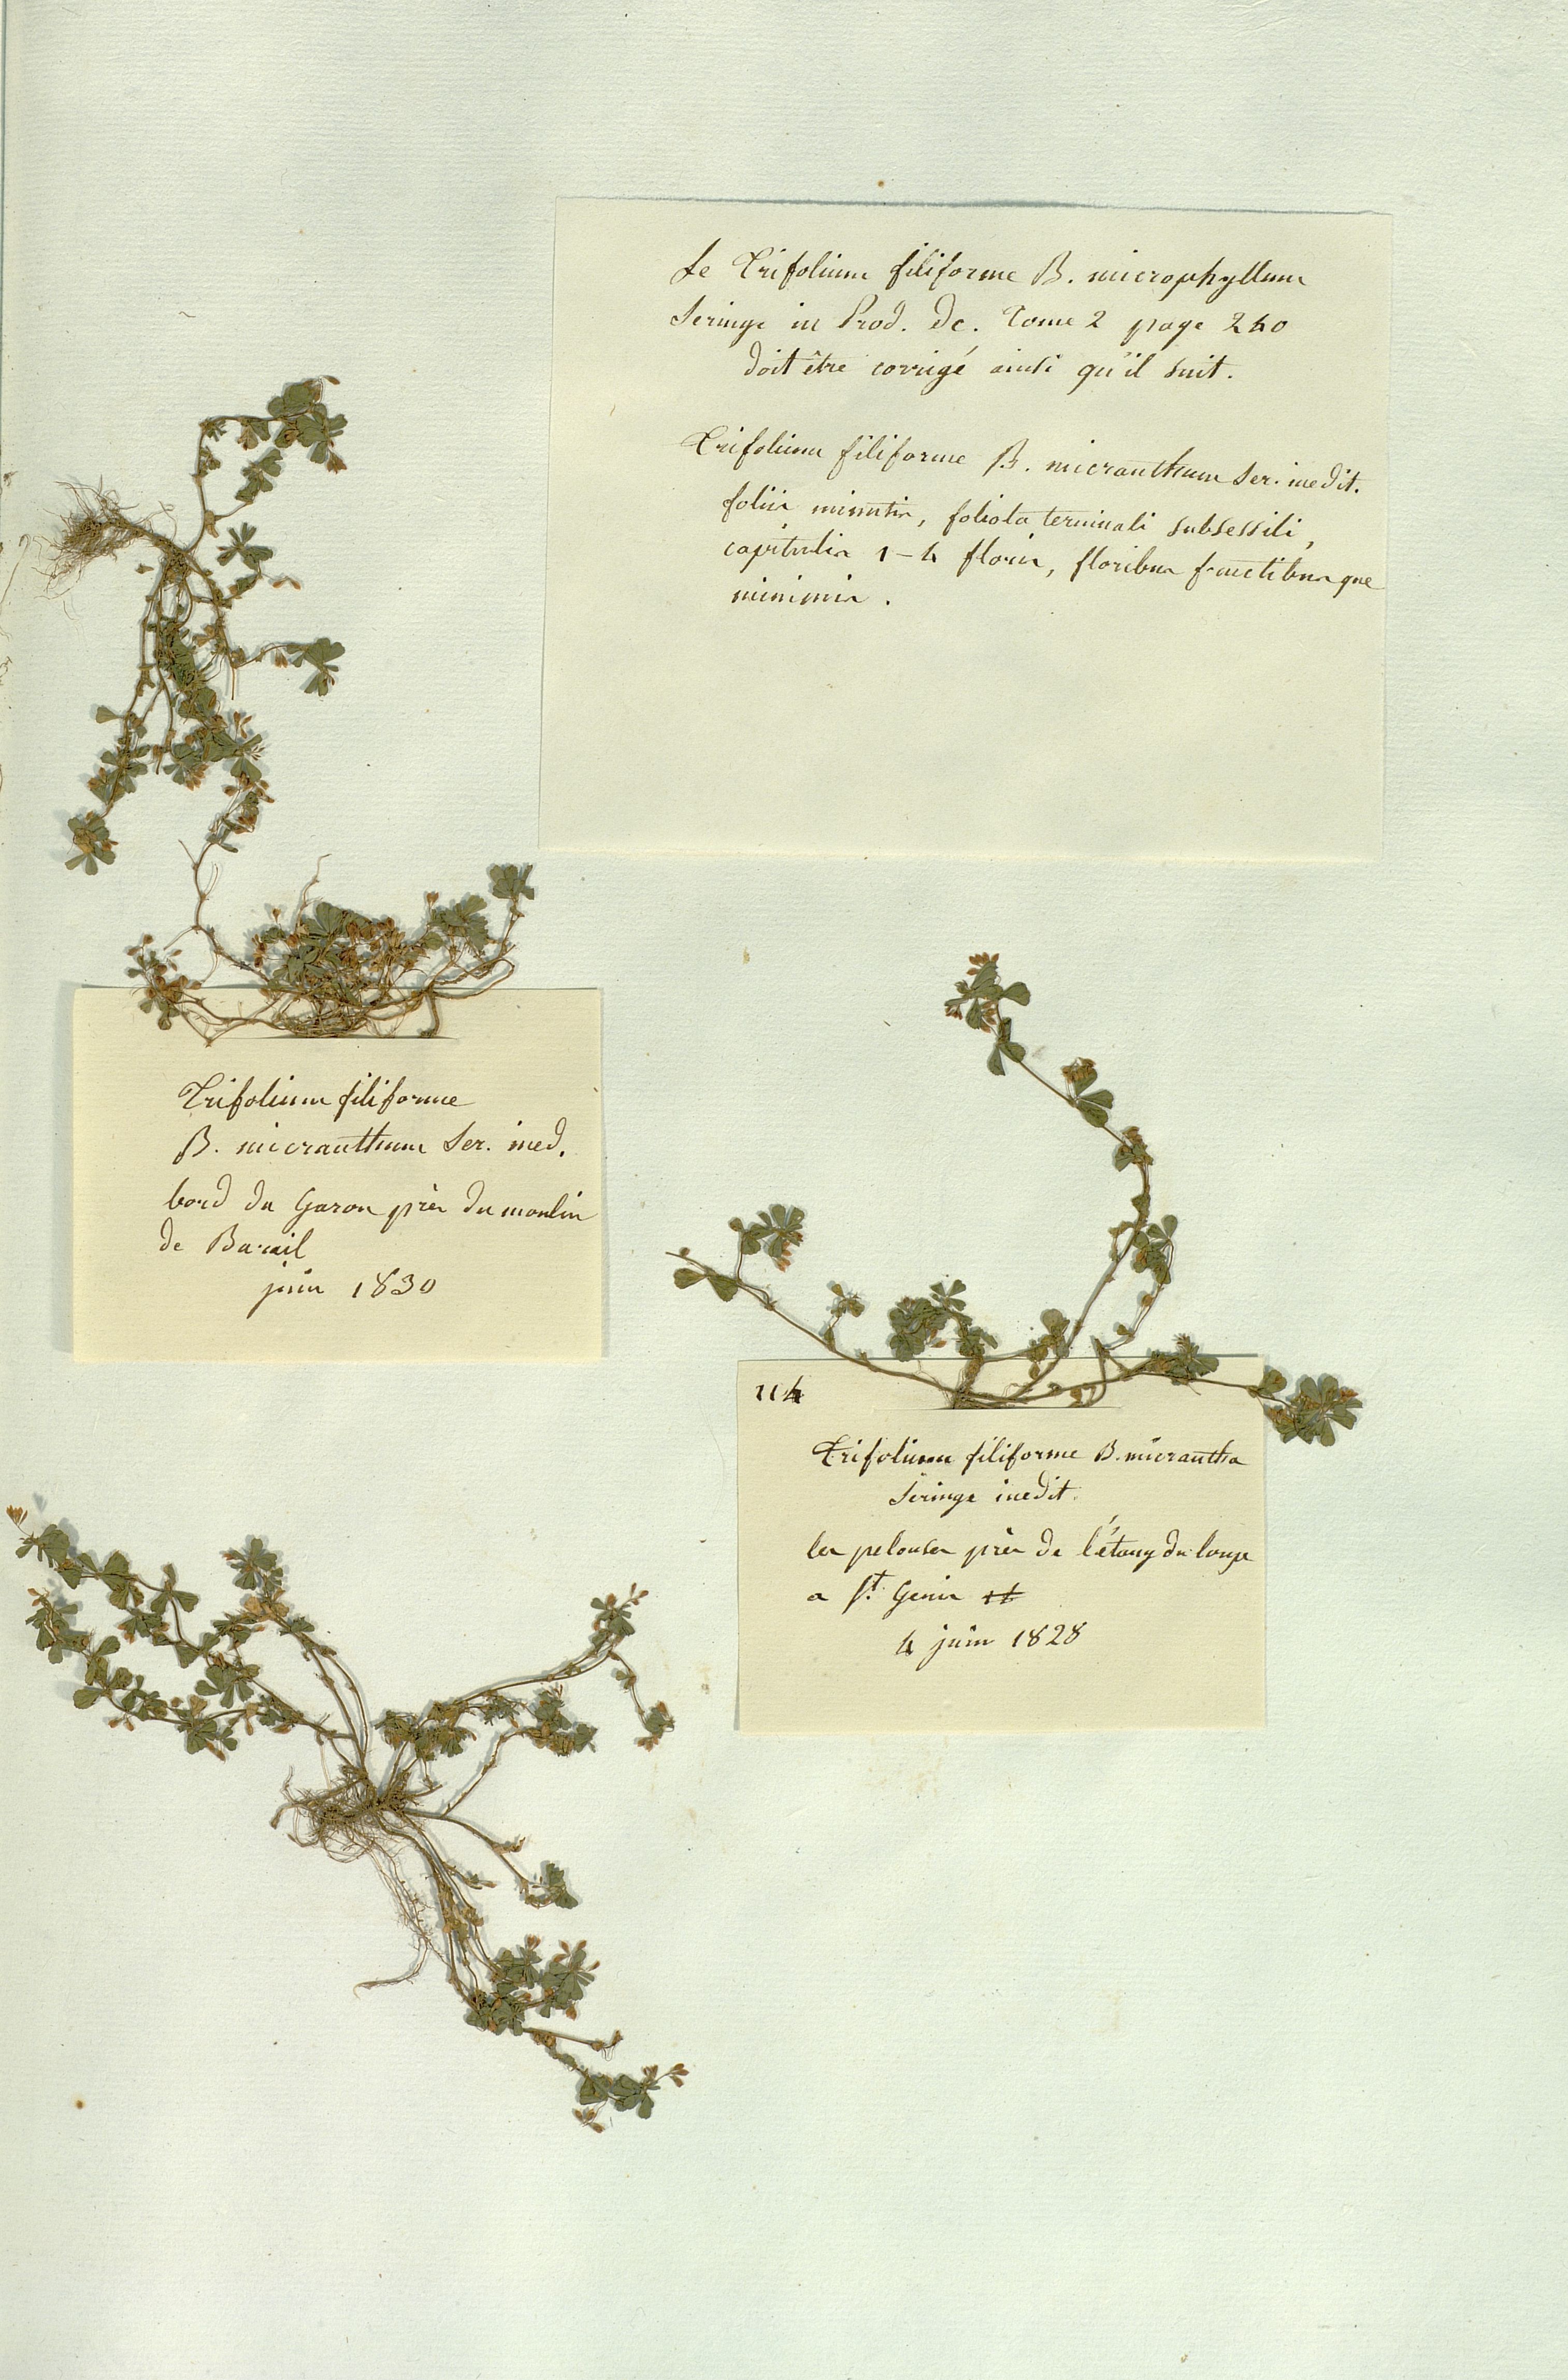 Le Trifolium filiforme B. microphyllum
Seringe in Prod. Dc. Tome 2 page 240
doit être corrigé ainsi qu'il suit.
Trifolium filiforme B. micranthum Ser. inedit.
foliis minutis, foliolo terminali subsessili,
capitulis 1-4 floris, floribus fructibusque
minimis.
Trifolium filiforme
B. micranthum Ser. ined.
bord du Garon près du moulin
de Barail
juin 1830
114
Trifolium filiforme B. micrantha
Seringe inedit.
les pelouses près de l'étang du loup
a St. Genis
4 juin 1828